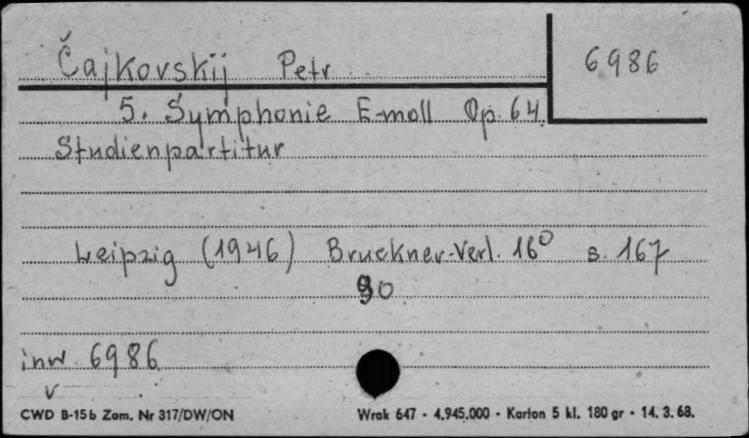 Čajkovskij Petr
6986
5. Symphonie E-moll Op. 64.
Studienpartitur
Leipzig (1946) Bruckner-Verl. 16° s. 167
90
inw. 6986
v
CWD B-15b Zam. Nr 317/DW/ON Wrak 647 - 4.945.000 - Karton 5 kl. 180 gr - 14. 3. 68.